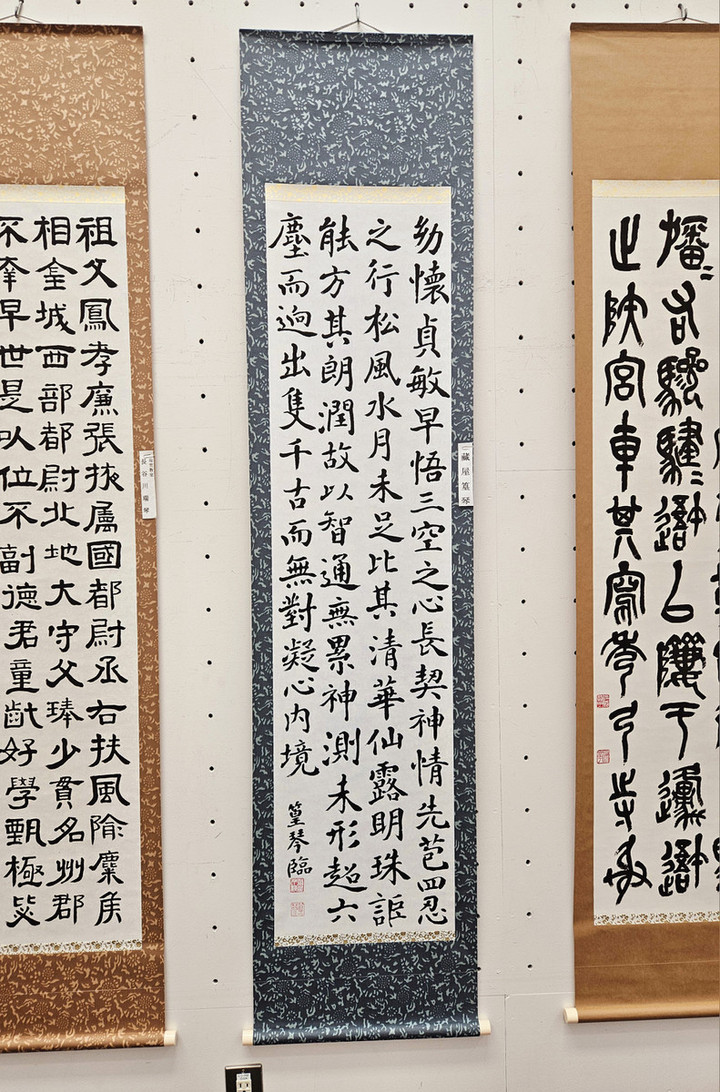 旛〻右驂騝〻避以隮于邍避
止陜宮車其寫秀弓寺射
幼懷貞敏早悟三空之心長契神情先苞四忍
之行松風水月未足比其清華仙露明珠詎
能方其朗潤故以智通無累神測未形超六
塵而逈出隻千古而無對凝心内境
篁琴臨
藏屋篁琴
祖父鳳孝廉張掖属國都尉丞右扶風隃麋侯
相金城西部都尉北地大守父琫少貫名州郡
不幸早世是以位不副德君童齔好學甄極毖
長谷川